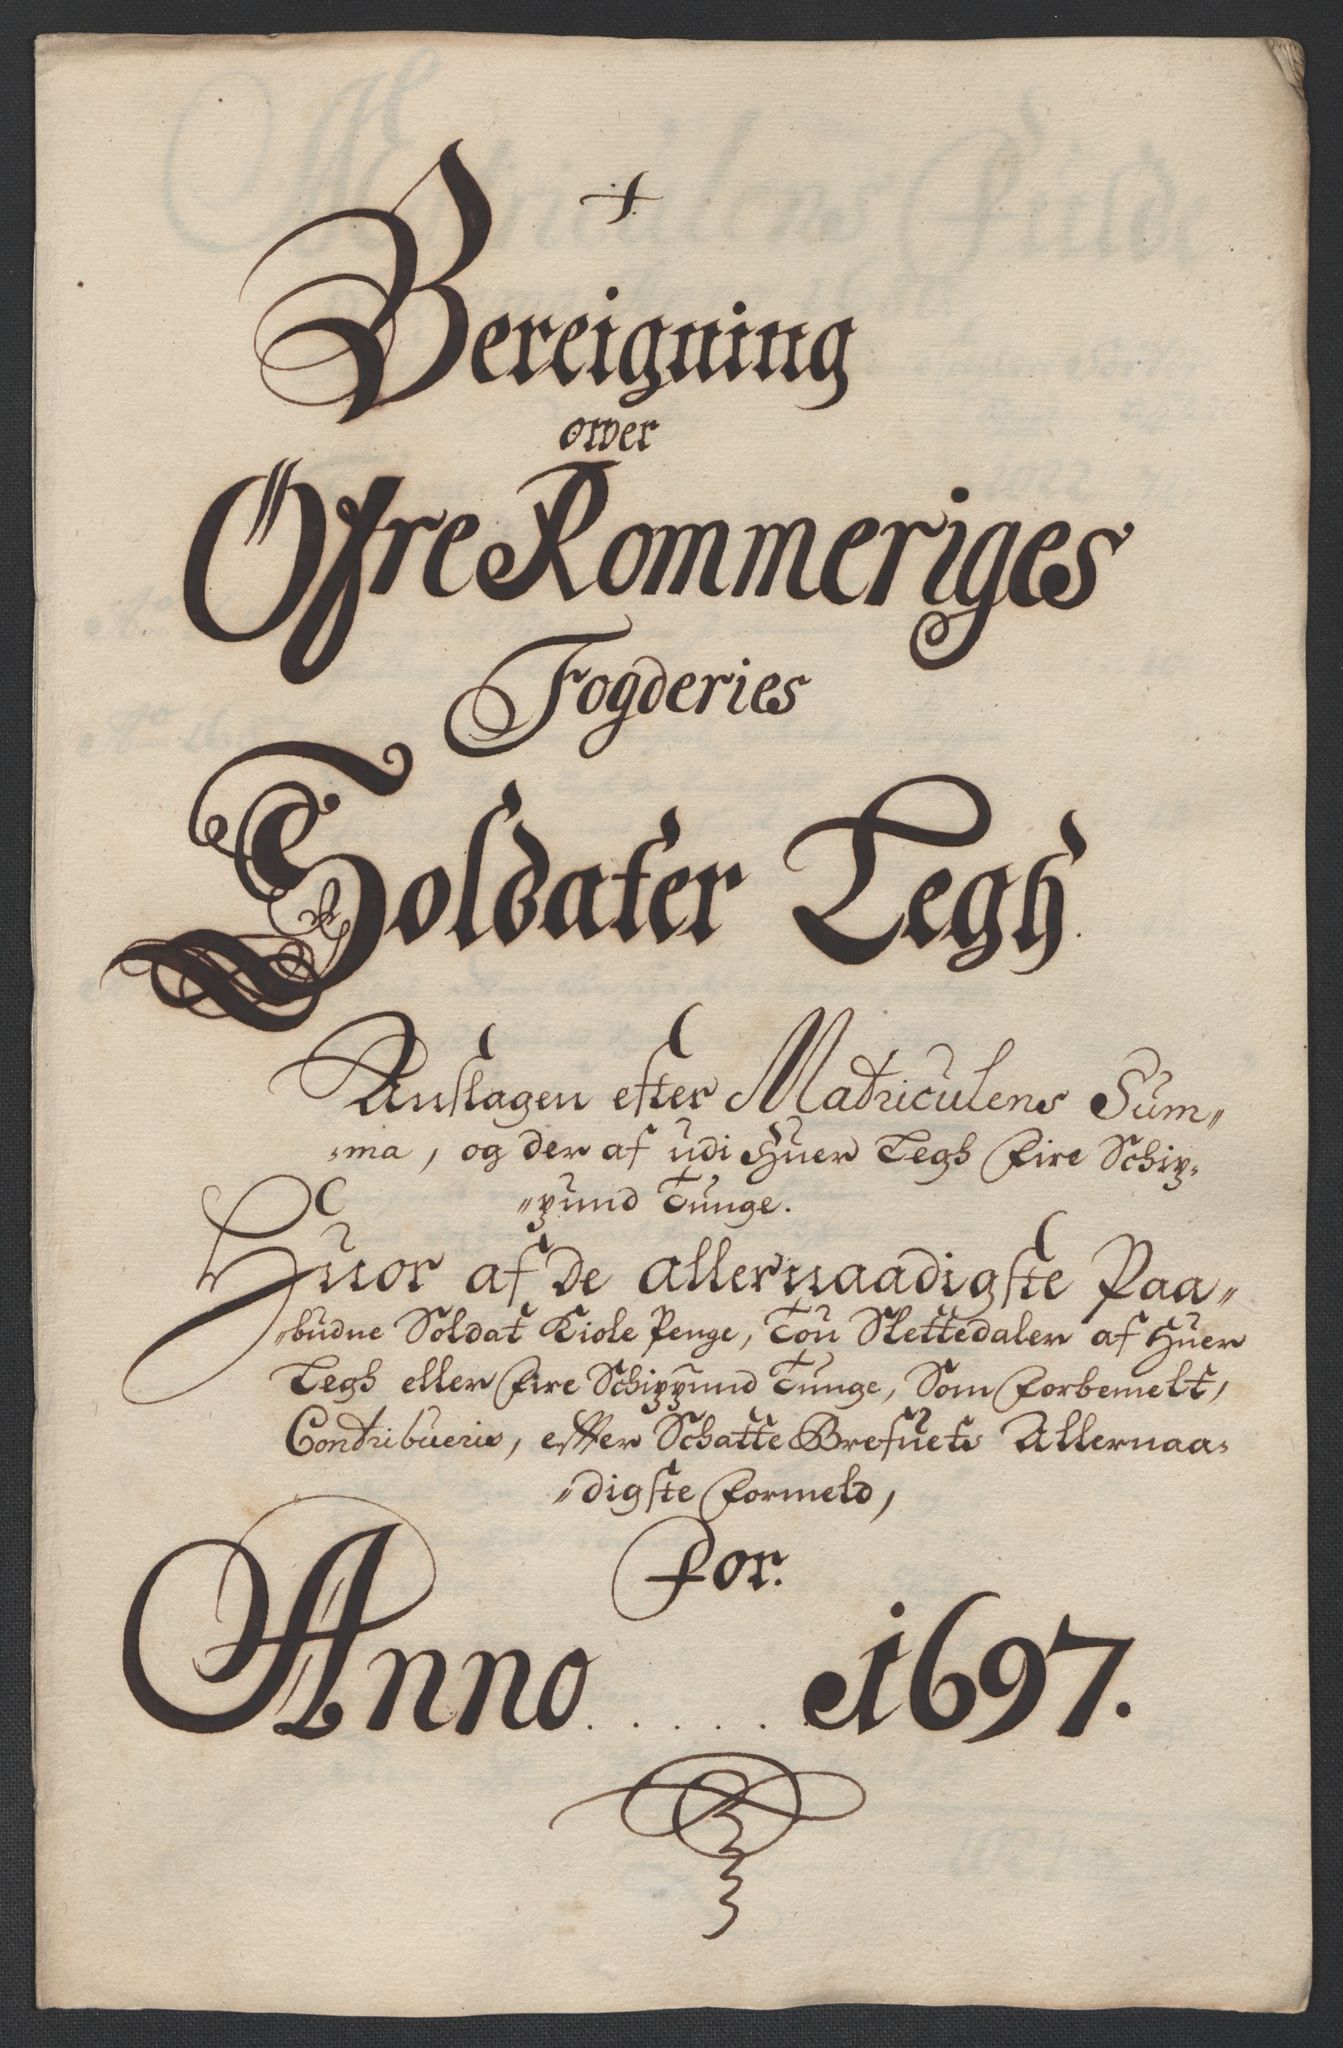 Bereigning
ower
Öfre Rommeriges
Fogderies
Soldater Legh.
Anslagen efter Matriculens Sum„
„ma, og der af udi Huer Legh fire Schip„
„pund Tunge.
Huor af de allernaadigste Paa„
„budne Soldat Kiole Penge, Tou Slettedaler af Huer
Legh eller fire Schippund Tunge, Som forbemelt,
Contribueris, effter Schatte Brefuets Allernaa„
„digste formeld,
for.
Anno ..... 1697.